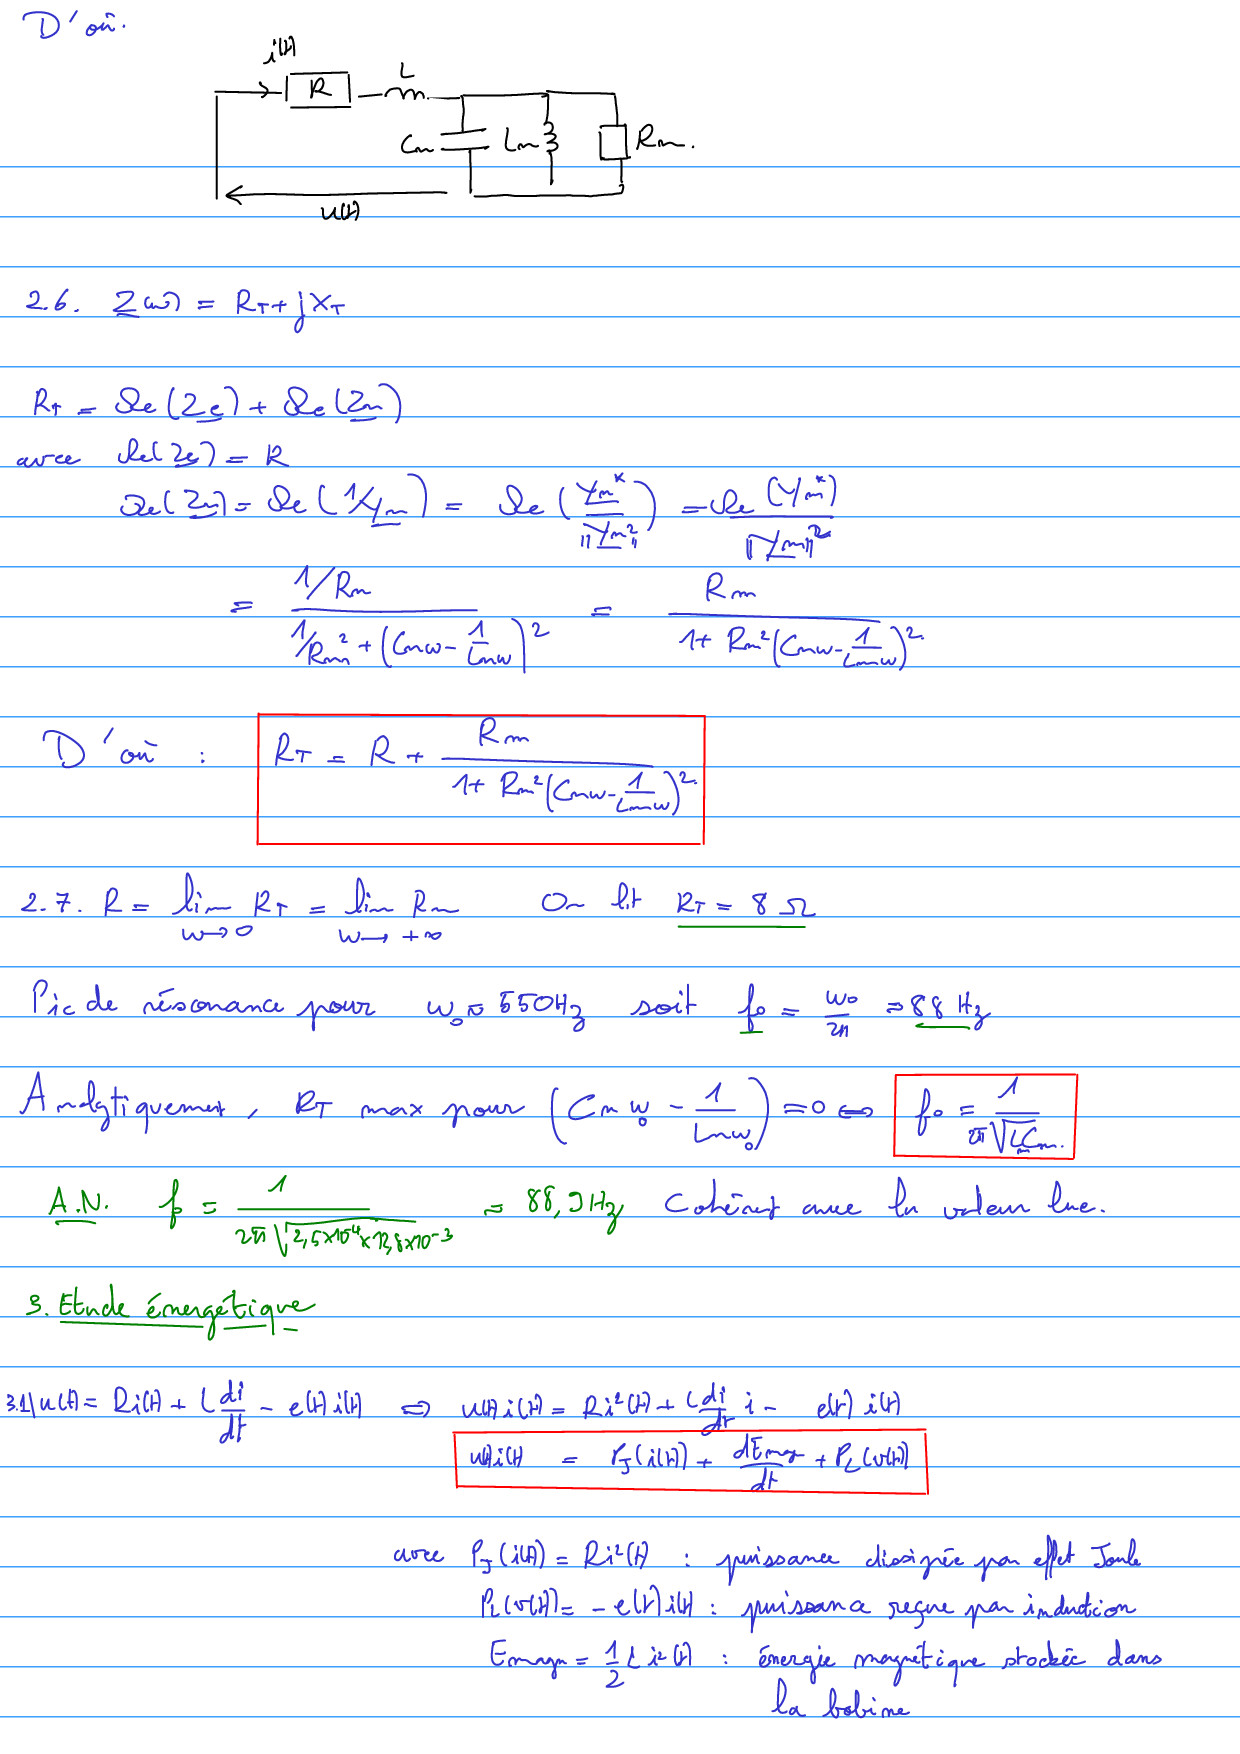 D'où.
i(t)
R L
Cm Lm Rm.
u(t)
2.6. Z(ω) = RT + jXT
RT = Re(Ze) + Re(Zm)
avec Re(Ze) = R
Re(Zm) = Re(1/Ym) = Re(Ym*/||Ym²||) = Re(Ym*)/||Ym||²
= (1/Rm)/(1/Rm² + (Cmω - 1/Lmω)²) = Rm/(1 + Rm²(Cmω - 1/Lmω)²)
D'où : RT = R + Rm/(1 + Rm²(Cmω - 1/Lmω)²)
2.7. R = lim RT = lim Rm On lit RT = 8 Ω
ω→0 ω→+∞
Pic de résonance pour ω0 ≈ 550Hz soit f0 = ω0/2π = 88 Hz
Analytiquement, RT max pour (Cm ω0 - 1/Lmω0) = 0 ⇔ f0 = 1/2π√LmCm.
A.N. f0 = 1/(2π√(2,5×10⁻⁴×12,8×10⁻³)) = 88,9Hz Cohérent avec la valeur lue.
3. Etude énergétique
3.1/ u(t) = Ri(t) + L di/dt - e(t)i(t) ⇔ u(t)i(t) = Ri²(t) + L di/dt i - e(t) i(t)
u(t)i(t) = PJ(i(t)) + dEmag/dt + PL(v(t))
avec PJ(i(t)) = Ri²(t) : puissance dissipée par effet Joule
PL(v(t)) = - e(t)i(t) : puissance reçue par induction
Emagn = 1/2 L i²(t) : énergie magnétique stockée dans
la bobine